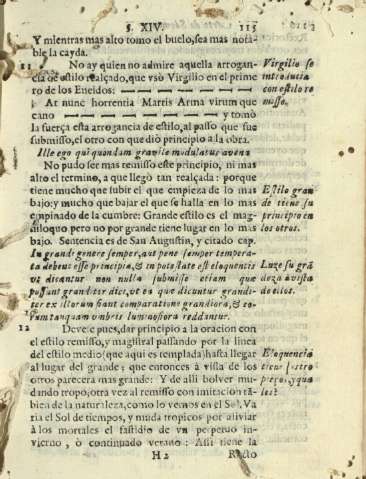 §. XIV. 115
Y mientras mas alto tomo el buelo, sea mas nota-
ble la cayda.
11 No ay quien no admire aquella arrogan-
cia de estilo realçado, que vsò Virgilio en el prime
ro de los Eneidos:
At nunc horrentia Martis Arma virumque
cano y tomò
la fuerça esta arrogancia de estilo, al passo que fue
submisso, el otro con que diò principio a la obra.
Ille ego qui quondam gracile modulatus avena
No pudo ser mas remisso este principio, ni mas
alto el termino, a que llegò tan realçada: porque
tiene mucho que subir el que empieza de lo mas
bajo: y mucho que bajar el que se halla en lo mas
empinado de la cumbre: Grande estilo es el mag-
niloquo pero no por grande tiene lugar en lo mas
bajo. Sentencia es de San Augustin, y citado cap.
In grandi genere semper, aut pene semper tempera-
ta debent esse principia, & in potestate est eloquentis
vt dicantur non nulla submisse etiam que
possunt granditer dici, vt ea que dicuntur grandi-
ter ex illorum fiant comparatione grandiora, &
tanquam vmbris luminosiora reddantur.
12 Deve, pues, dar principio a la oracion con
el estilo remisso, y magistral passando por la linea
del estilo medio (que aqui es templada) hasta llegar
al lugar del grande: que entonces à vista de los
otros parecera mas grande: Y de alli bolver mu-
dando tropo, otra vez al remisso con imitacion tã-
bien de la naturaleza, como lo vemos en el Sol, Va
ria el Sol de tiempos, y muda tropicos por aliviar
à los mortales el fastidio de vn perpetuo in-
vierno, ò continuado verano: Assi tiene la
H2 Recto
Virgilio se
introducia
con estilo re
misso.
Estilo gran
de tiene su
principio en
los otros.
Luze su grã
deza à vista
de ellos.
Eloquencia
tiene